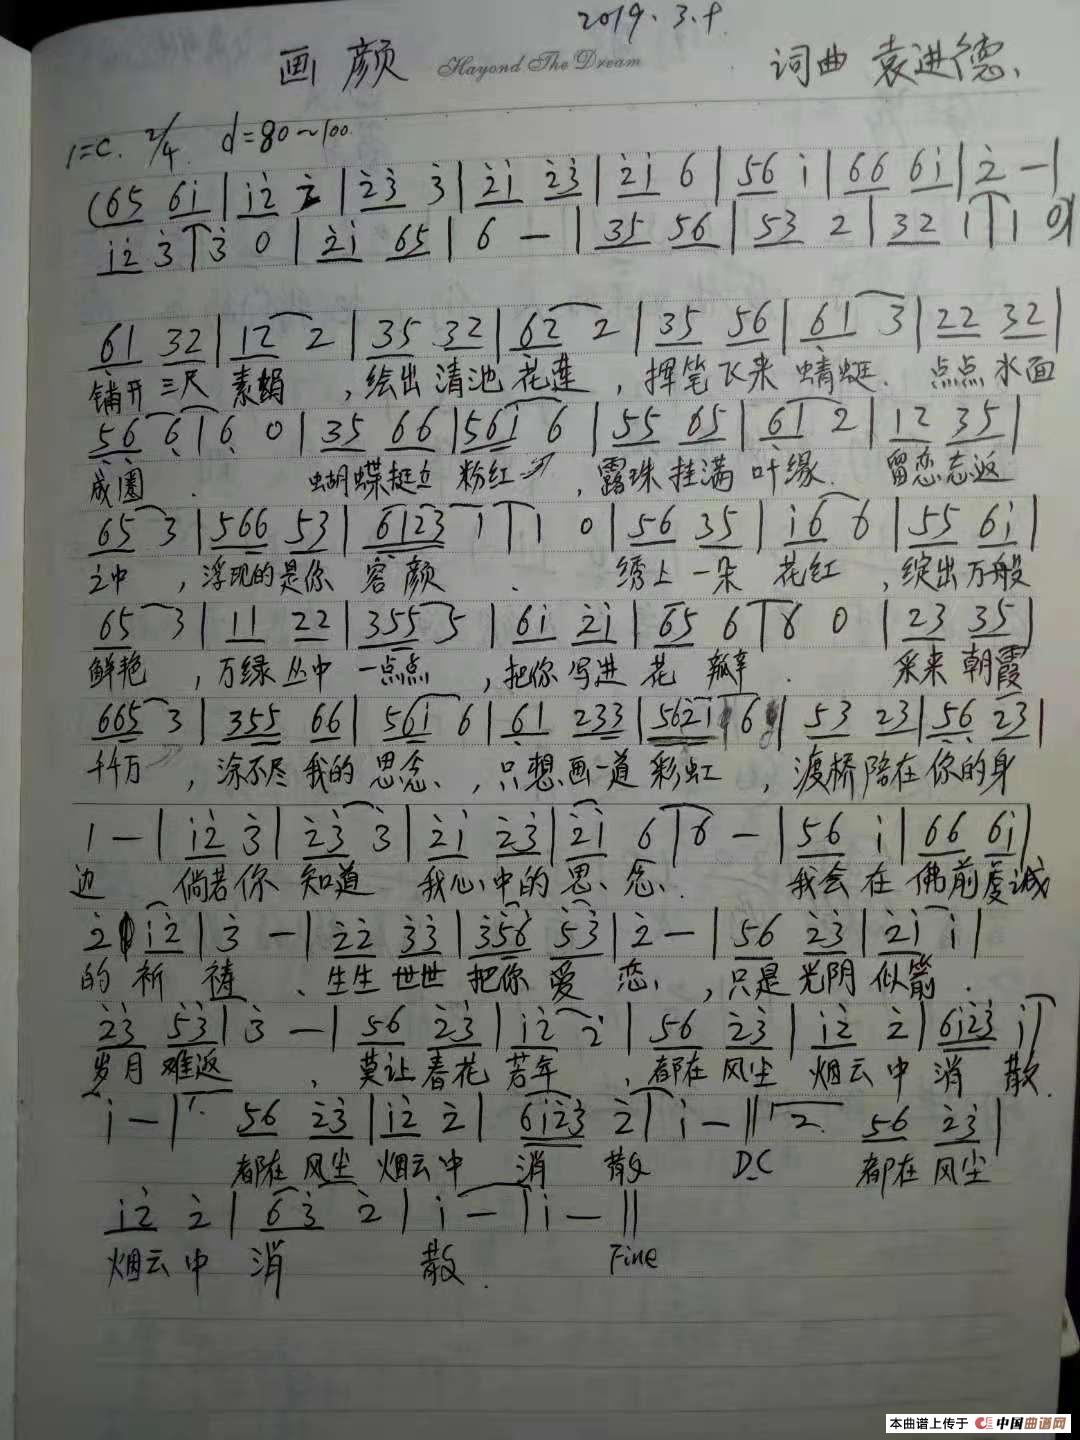 2019.3.9.
画颜 Hayond The Dream 词曲 袁进德、
1=C. 2/4. d=80~100.
(65 6i | i2 2 | 23 3 | 2i 23 | 2i 6 | 56 i | 66 6i | 2 — |
i2 3 | 3 0 | 2i 65 | 6 — | 35 56 | 53 2 | 32 1 | 1 0)
61 32 | 12 2 | 35 32 | 62 2 | 35 56 | 61 3 | 22 32 |
铺开三尺 素绢 ，绘出清池花莲 ，挥笔飞来蜻蜓. 点点水面
56 6 | 6 0 | 35 66 | 561 6 | 55 65 | 61 2 | 12 35 |
成圈 . 蝴蝶挺立 粉红 ，露珠挂满 叶缘. 留恋忘返
65 3 | 566 53 | 6123 1 | 1 0 | 56 35 | i6 6 | 55 6i |
之中 ，浮现的是你 容颜 . 绣上一朵 花红 ，绽出万般
65 3 | 11 22 | 355 5 | 6i 2i | 65 6 | 6 0 | 23 35 |
鲜艳 ，万绿丛中 一点点 ，把你写进 花 瓣 . 采来 朝霞
665 3 | 355 66 | 561 6 | 61 233 | 562i | 6 | 53 23 | 56 23 |
千千万 ，涂不尽 我的 思念、，只想画一道 彩虹 ，渡桥陪在你的身
1 — | i2 3 | 23 3 | 2i 23 | 2i 6 | 6 — | 56 i | 66 6i |
边 倘若你 知道 我心中的 思 念、. 我会 在 佛前虔诚
2 i2 | 3 — | 22 33 | 356 53 | 2 — | 56 23 | 2i i |
的 祈 祷 、生生 世世 把你 爱 恋 ，只是光阴 似箭 .
23 53 | 3 — | 56 23 | i2 2 | 56 23 | i2 2 | 6i23 i |
岁月 难返 ，莫让春花 若年 ，都在 风尘 烟云中 消 散.
i — | 1. 56 23 | i2 2 | 6i23 2 | i — || 2. 56 23 |
都在 风尘 烟云中 消 散 D.C 都在 风尘
i2 2 | 63 2 | i — | i — ||
烟云 中 消 散 . Fine
本曲谱上传于 中国曲谱网